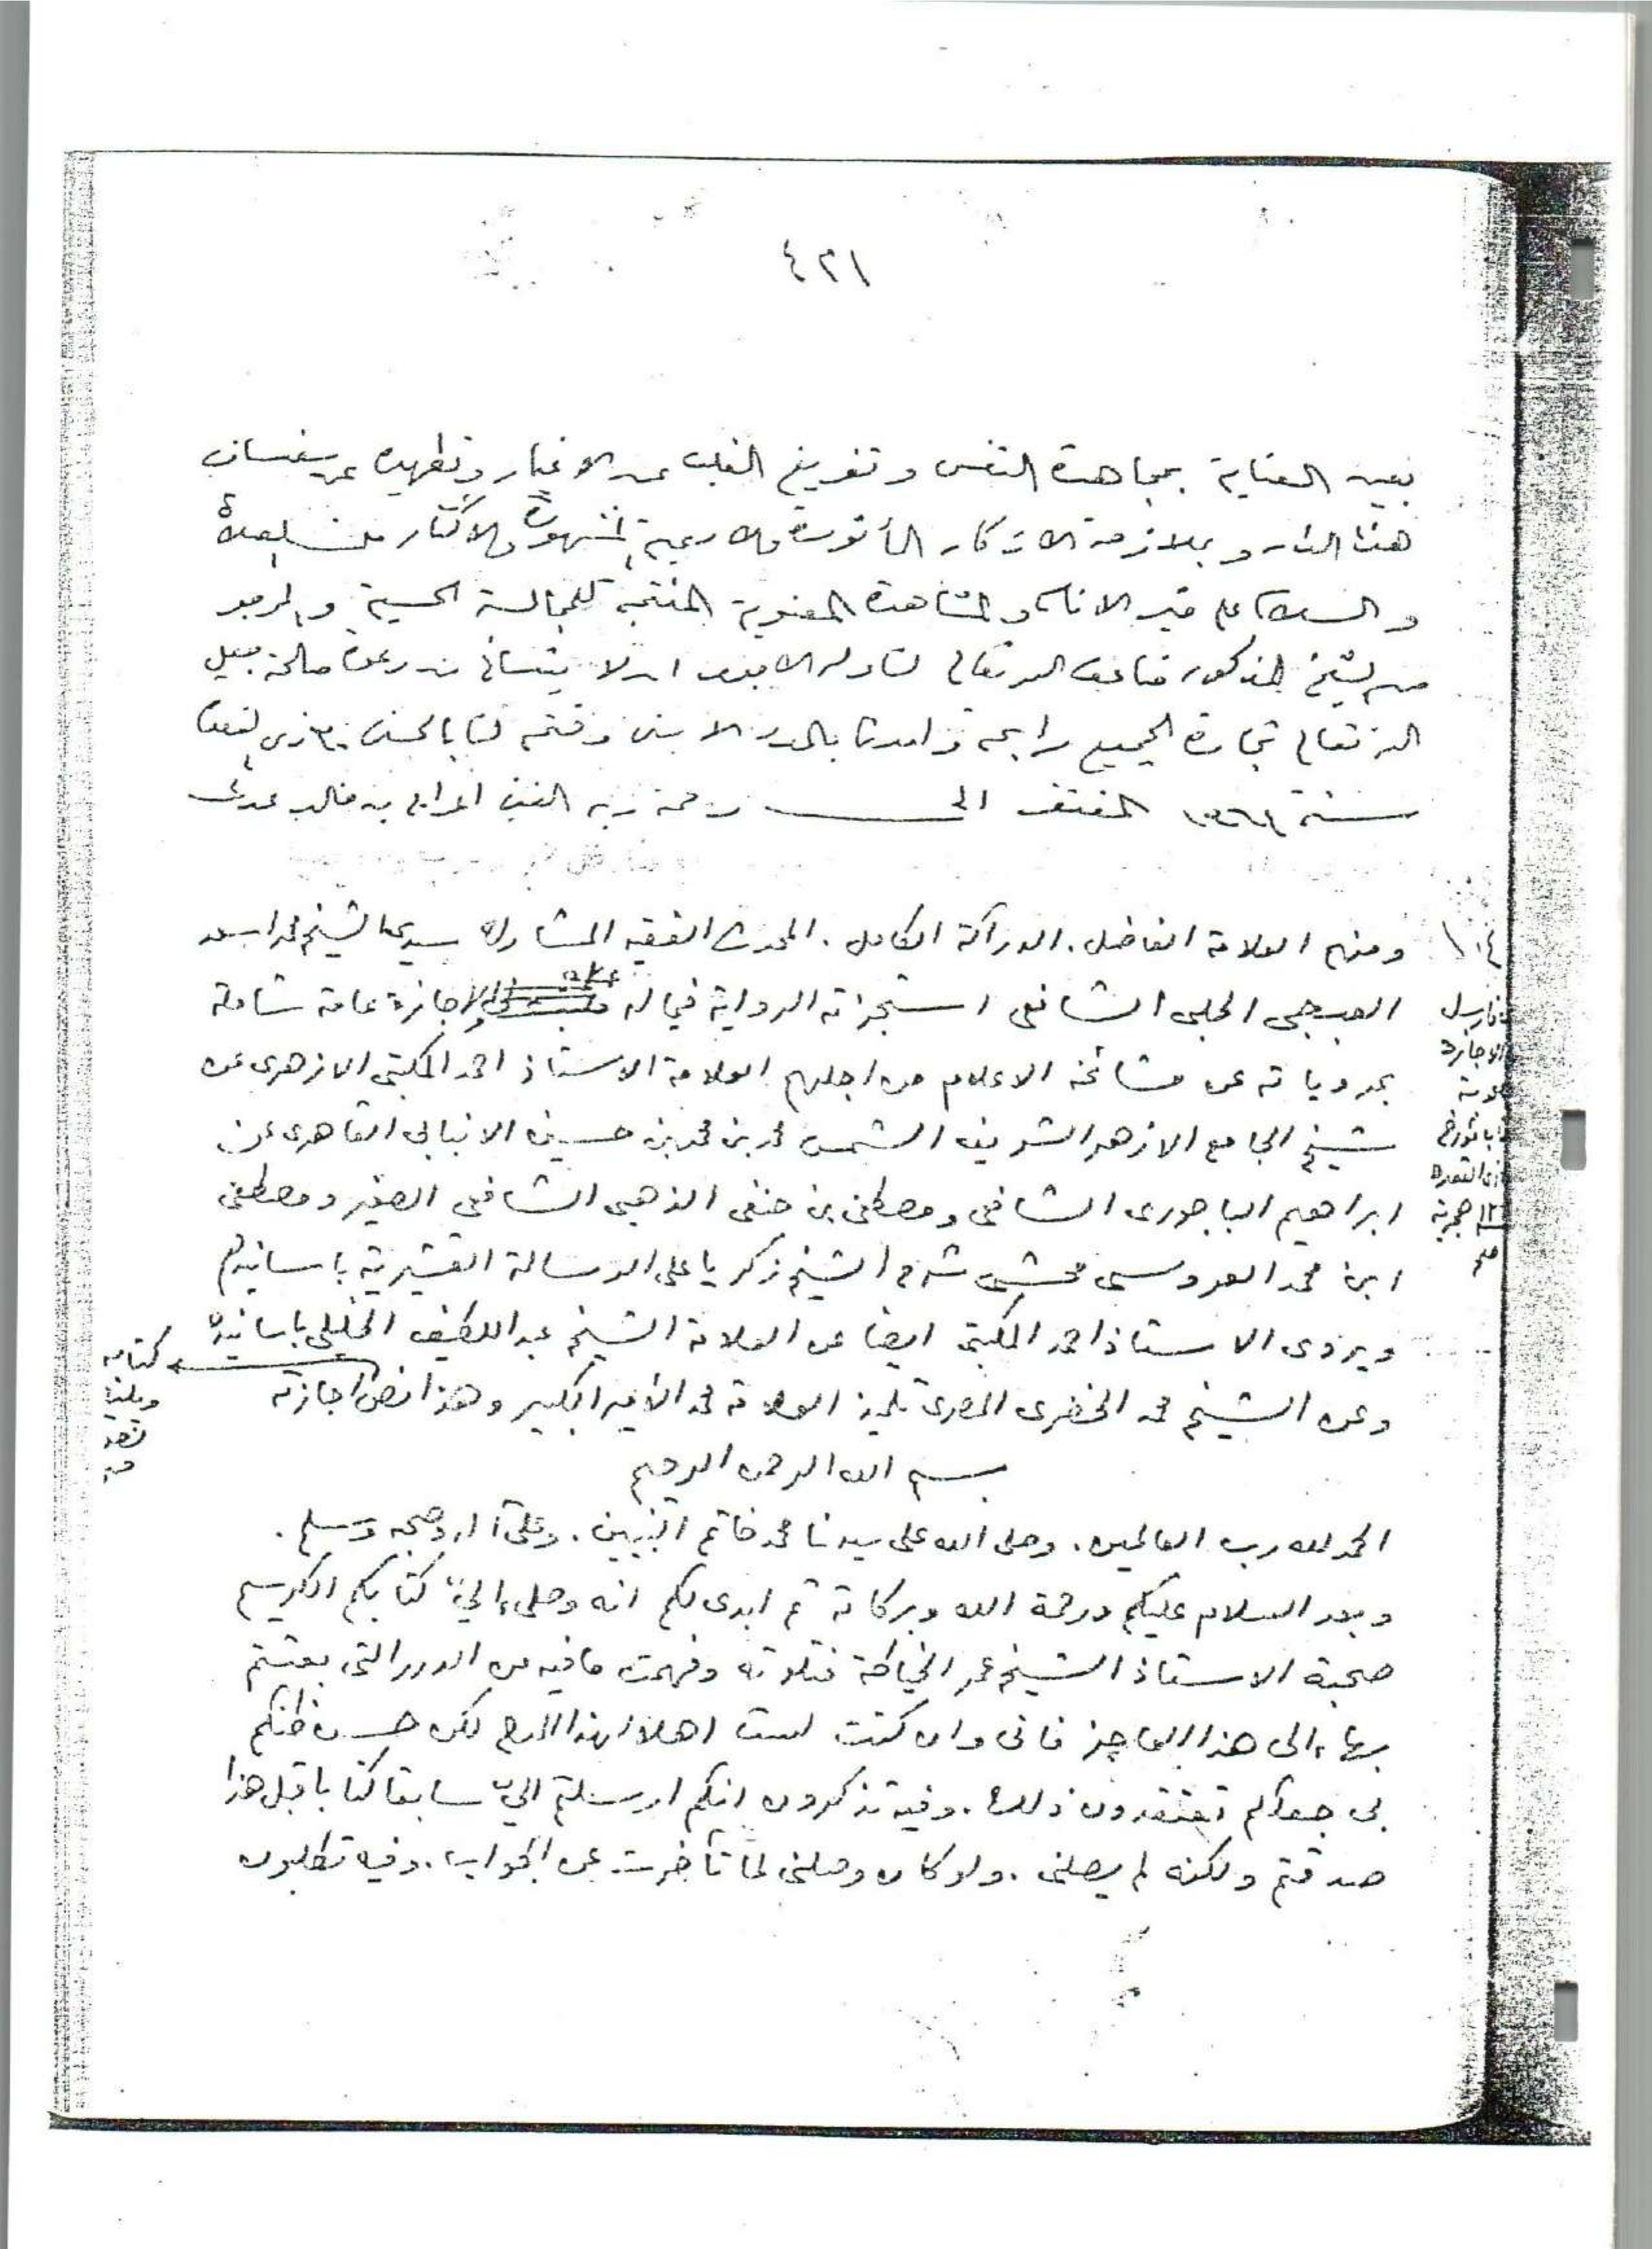 ٤٢١
بعين العناية بمجاهدة النفس وتفريغ القلب عن الاغيار وتطهيره عن
هذه الدار وبملازمة الاذكار المأثورة والادعية المشهورة والاكثار من الصلاة
والسلام على خير الانام والمشاهدة المعنوية المنتجة للمجالسة الحسية والمرجو
من الشيخ المذكور ضاعف الله تعالى لنا وله الاجور ان لا ينساني من دعوة صالحة جعل
الله تعالى تجارة الجميع رابحة وامدنا بالمدد الاسنى وختم لنا بالحسنى ذي القعدة
سنة المفتقر الى رحمة ربه الغني
١٠٤
ومنهم العلامة الفاضل. الدراكة الكامل. المحدث الفقيه المشارك سيدي الشيخ محمد اسعد
العبجي الحلبي الشافعي استجزته الرواية فيما له الاجازة عامة شاملة
بمروياته عن مشائخه الاعلام من اجلهم العلامة الاستاذ احمد المكتبي الازهري عن
شيخ الجامع الازهر الشريف الشمس محمد بن محمد بن حسين الانبابي القاهري عن
ابراهيم الباجوري الشافعي ومصطفى بن حنفي الذهبي الشافعي الصغير ومصطفى
ابن محمد العروسي محشي شرح الشيخ زكريا على الرسالة القشيرية باسانيدهم
ويروى الاستاذ احمد المكتبي ايضا عن العلامة الشيخ عبد اللطيف الخليلي باسانيده
وعن الشيخ محمد الخضري المصري تلميذ العلامة محمد الأمير الكبير وهذا نص اجازته
فارسل
الاجازة
القعدة
هجرية
صح
كتابه
بسم الله الرحمن الرحيم
الحمد لله رب العالمين. وصلى الله على سيدنا محمد خاتم النبيين. وعلى آله وصحبه وسلم.
وبعد السلام عليكم ورحمة الله وبركاته ثم ابدى لكم انه وصلني الي كتابكم الكريم
صحبة الاستاذ الشيخ عمر الخياطة فتلوته وفهمت مافيه من الدرر التي بعثتم
بها الى هذا العاجز فاني وان كنت لست اهلا لهذا المدح لكن حسن ظنكم
بي جعلكم تعتقدون ذلك. وفيه تذكرون انكم ارسلتم الي سابقا كتابا قبل هذا
صدقتم ولكنه لم يصلني. ولو كان وصلني لما تأخرت عن الجواب. وفيه تطلبون